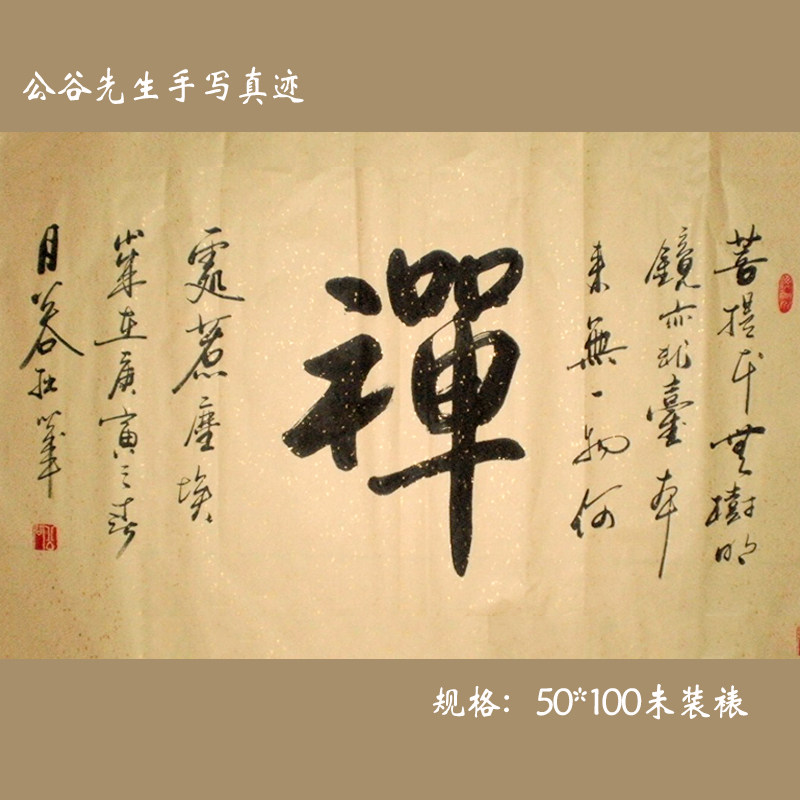 公谷先生手写真迹
菩提本無樹明
鏡亦非臺本
来無一物何
禪
處惹塵埃
歲在庚寅之春
月公谷拙筆
规格：50*100未装裱